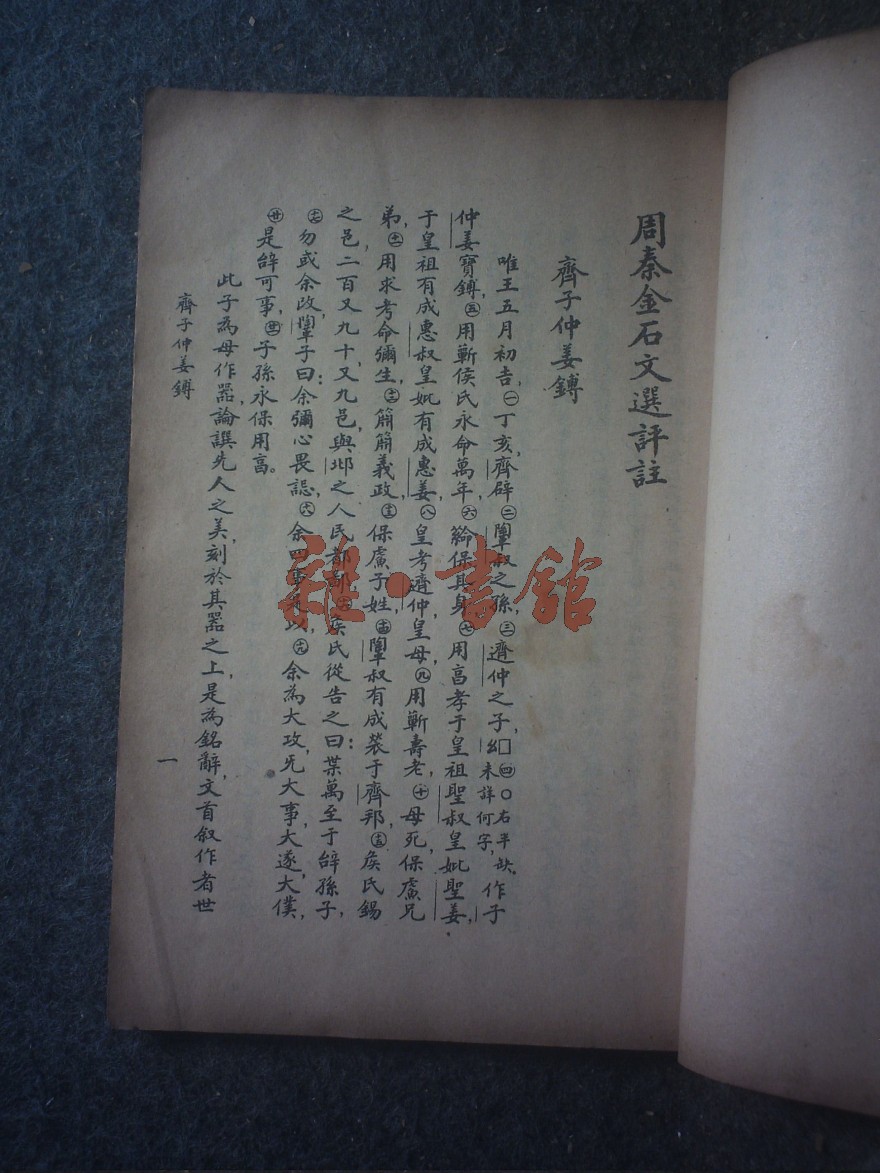 周秦金石文選評註
齊子仲姜鎛
唯王五月初吉㊀丁亥,齊辟㊁叔之孫,㊂仲之子,□㊃〇右半缺,未詳何字,作子
仲姜寶鎛,㊄用蘄侯氏永命萬年,㊅保其身,㊆用亯孝于皇祖聖叔皇妣聖姜,
于皇祖有成惠叔皇妣有成惠姜,㊇皇考仲皇母,㊈用蘄壽老,㊉母死,保盧兄
弟,㊉㊀用求考命彌生,㊉㊁簡簡義政,㊉㊂保盧子姓,㊉㊃叔有成裝于齊邦,㊉㊄侯氏錫
之邑二百又九十又九邑,與邶之人民都鄙,㊉㊅侯氏從告之曰:枼萬至于辝孫子,
㊉㊆勿或余改,子曰:余彌心畏誋,㊉㊇余四事是以,㊉㊈余為大攻,大事,大遂,大僕,
㊁㊉是辝可事,㊁㊉㊀子孫永保用亯。
此子為母作器,論譔先人之美,刻於其器之上,是為銘辭,文首叙作者世
齊子仲姜鎛
一
雜·書館